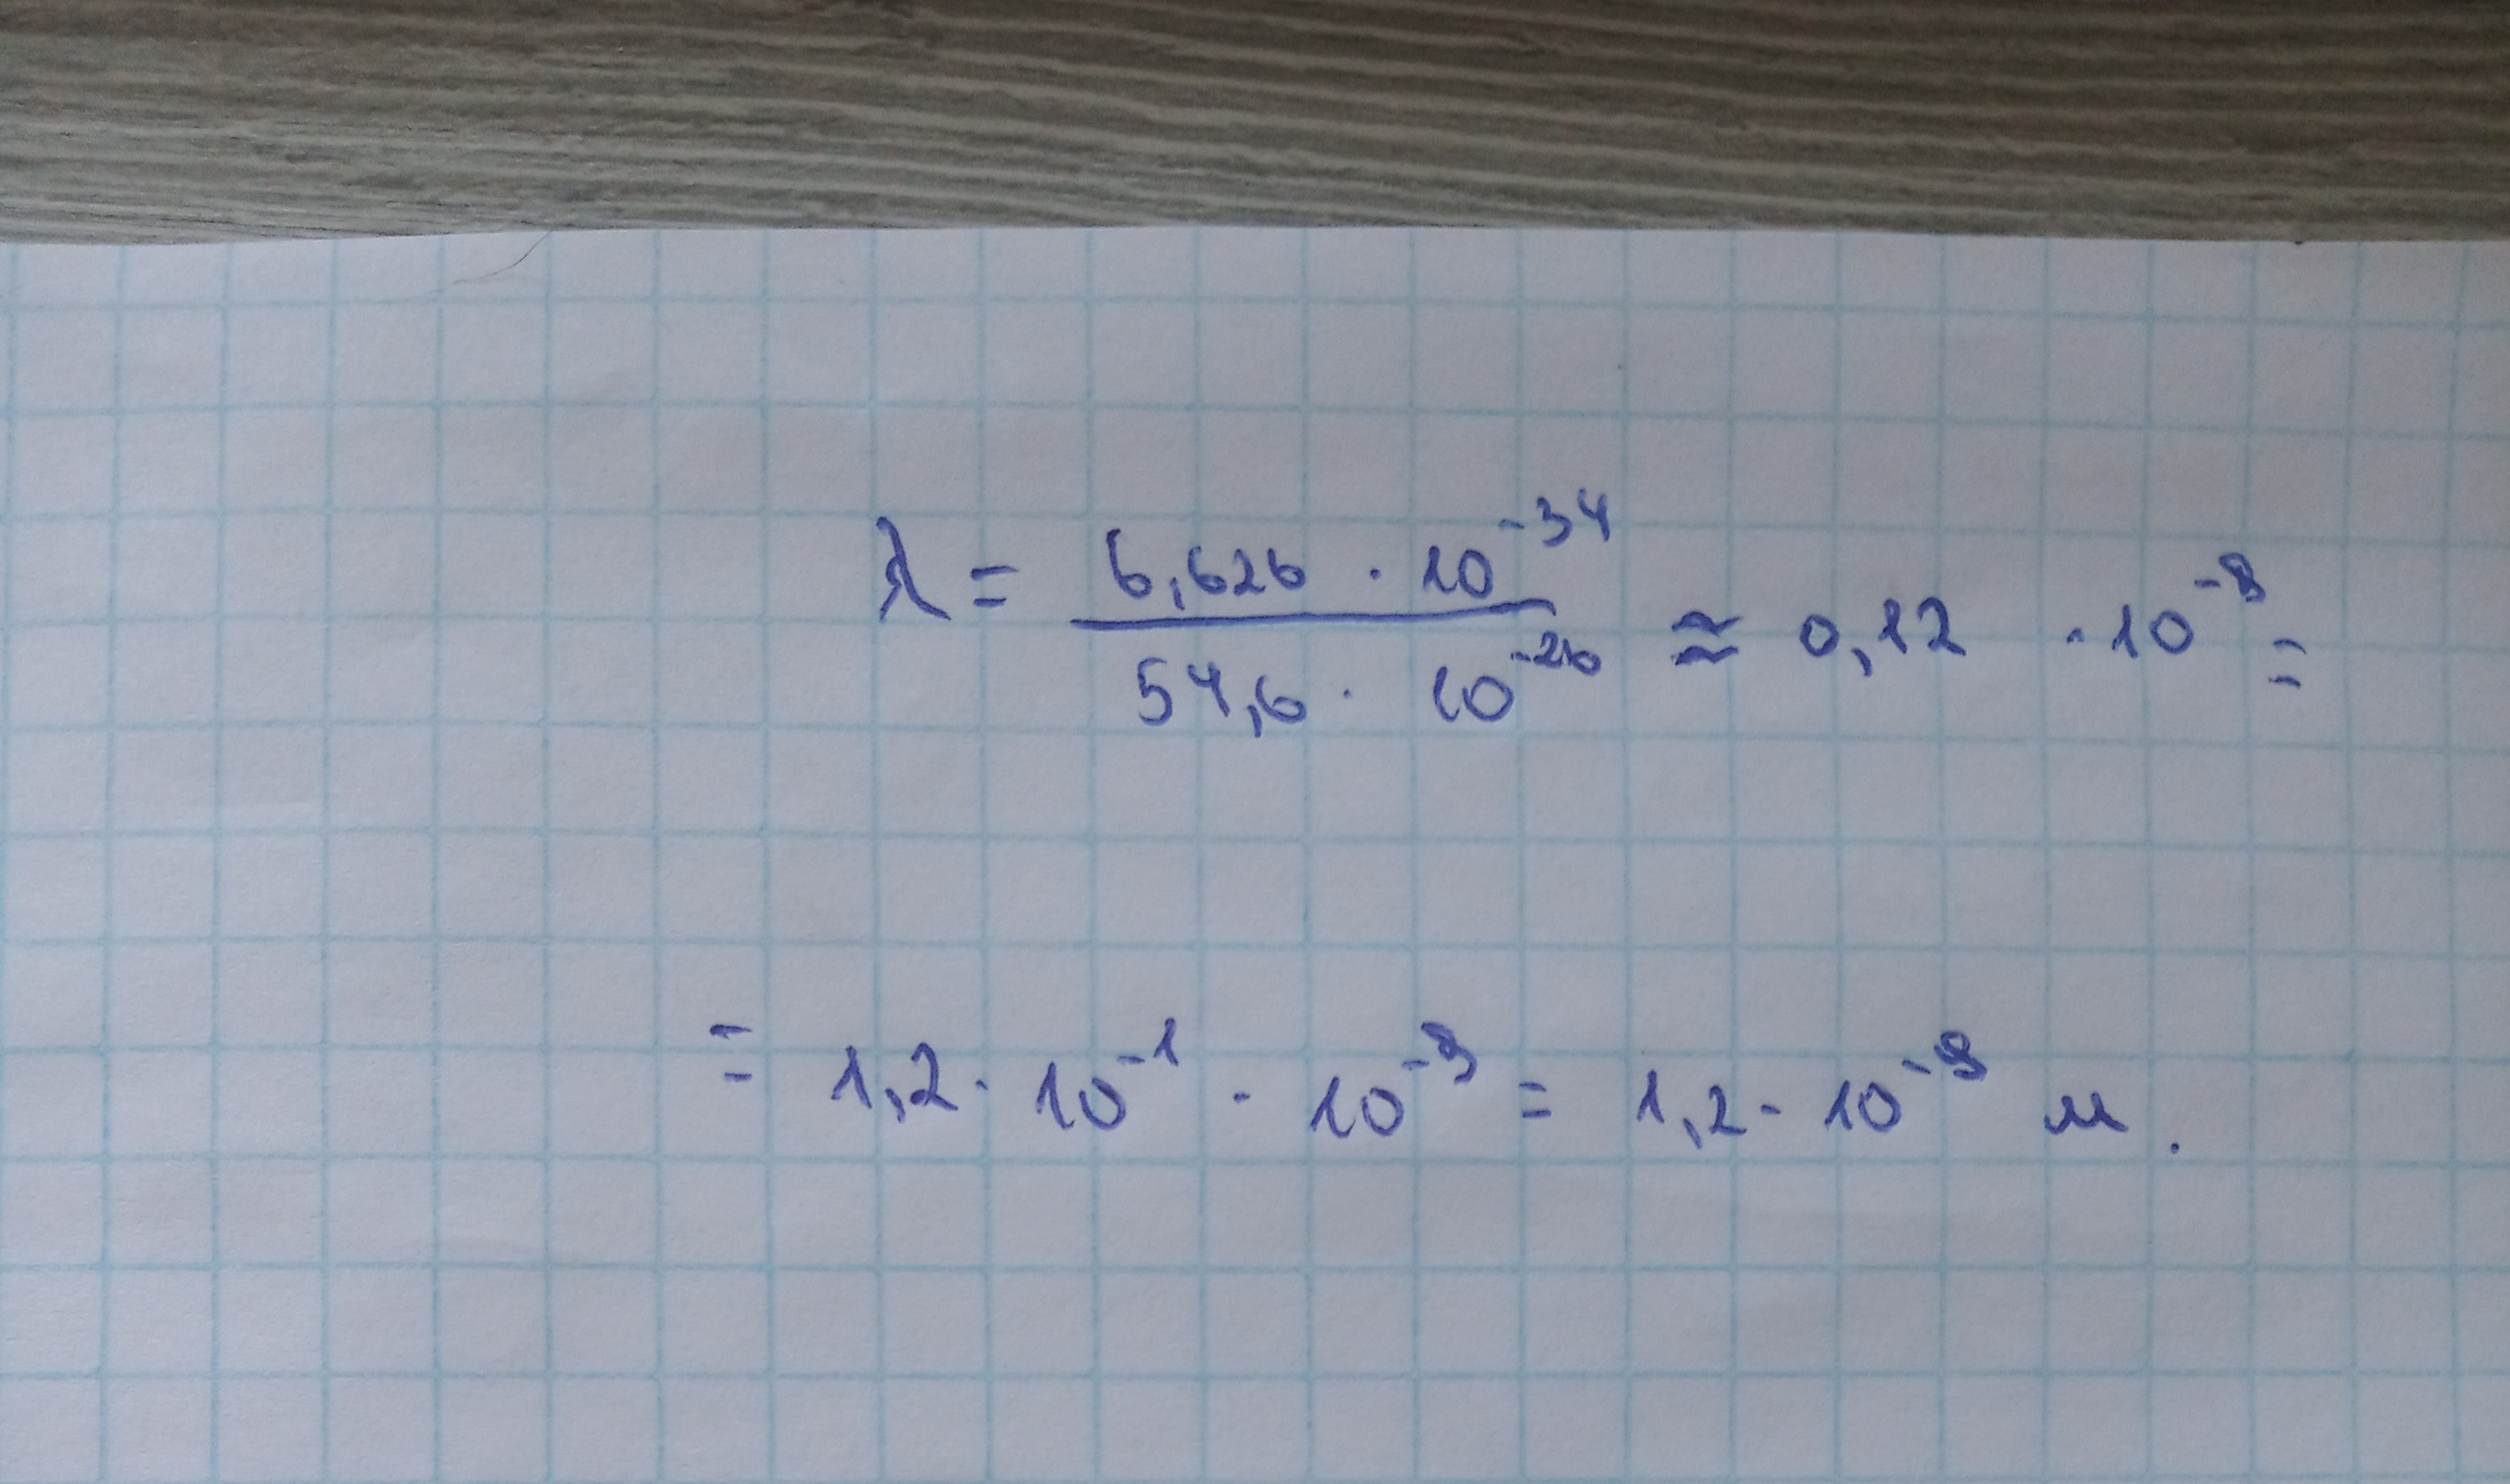 λ = (6,626 · 10⁻³⁴) / (54,6 · 10⁻²⁶) ≅ 0,12 · 10⁻⁸ =
= 1,2 · 10⁻¹ · 10⁻⁸ = 1,2 · 10⁻⁹ м.